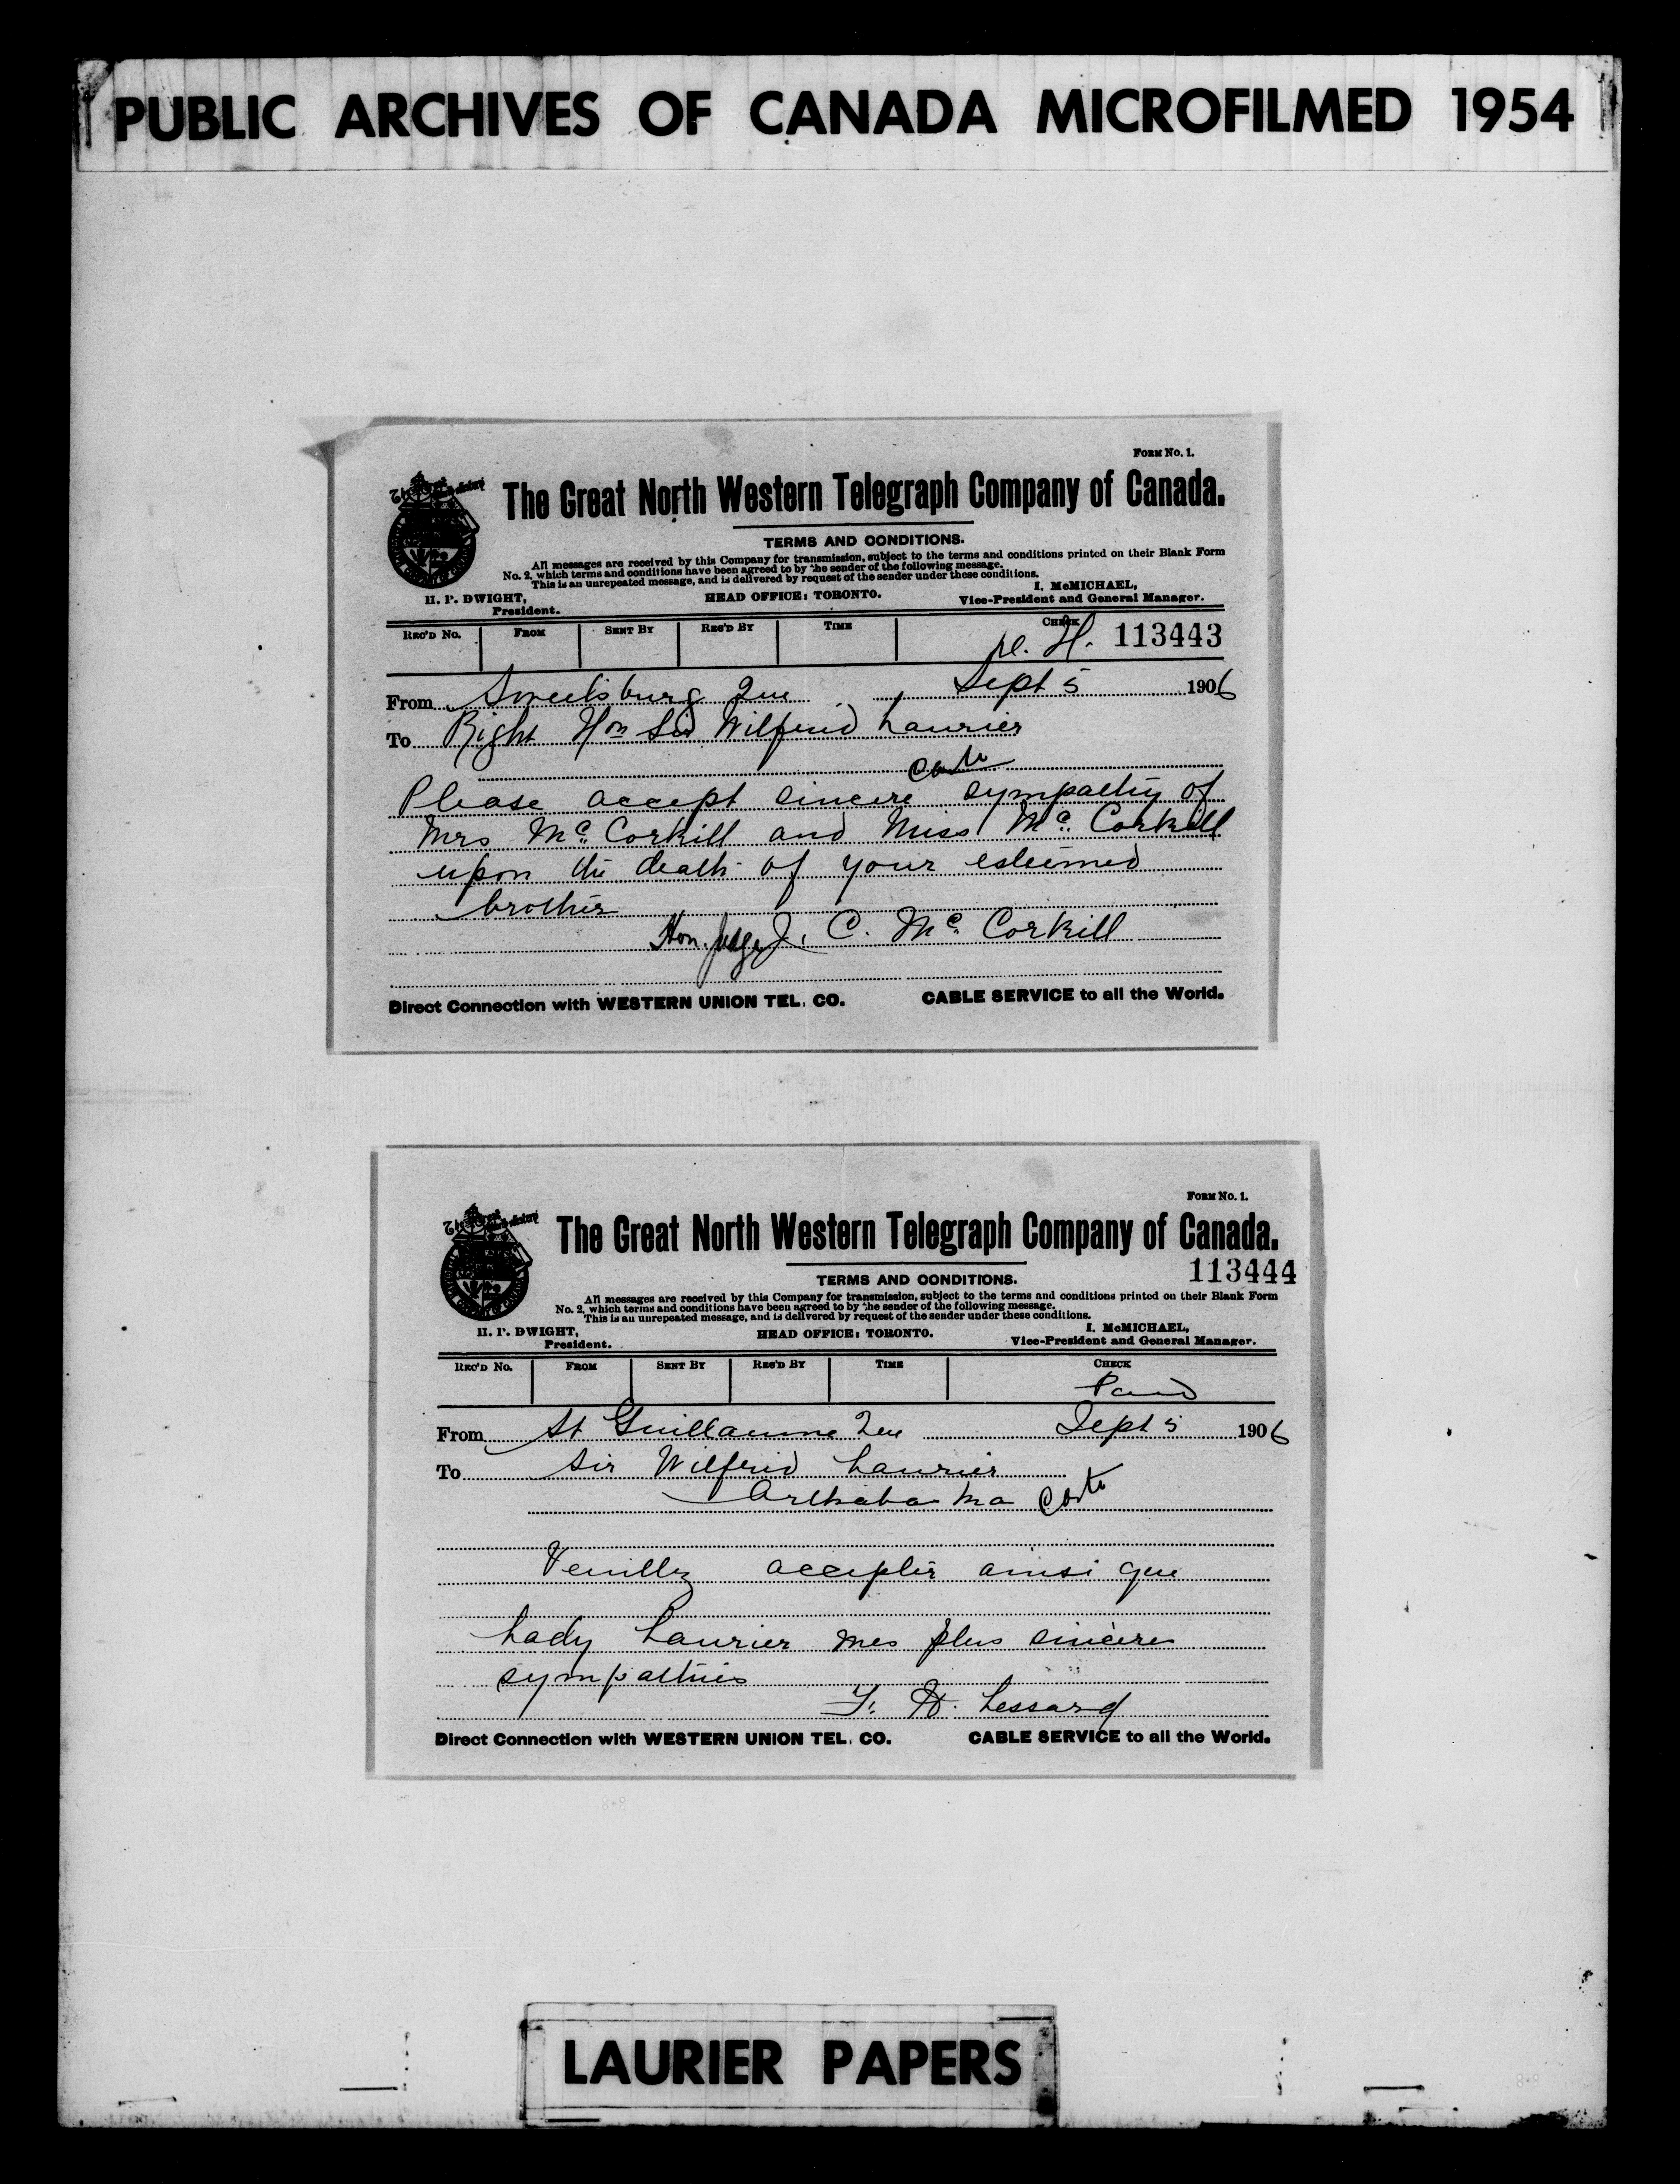 PUBLIC ARCHIVES OF CANADA MICROFILMED 1954
FORM No. 1.
The Great North Western Telegraph Company of Canada.
TERMS AND CONDITIONS.
All messages are received by this Company for transmission, subject to the terms and conditions printed on their Blank Form
No. 2, which terms and conditions have been agreed to by the sender of the following message.
This is an unrepeated message, and is delivered by request of the sender under these conditions.
H. P. DWIGHT, President.
HEAD OFFICE: TORONTO.
I. McMICHAEL, Vice-President and General Manager.
REC'D No. FROM SENT BY REC'D BY TIME CHECK
113443
From Sweetsburg Que Sept 5 1906
To Right Hon Sir Wilfrid Laurier
Please accept sincere sympathy of
Mrs McCorkill and Miss McCorkill
upon the death of your esteemed
brother
Hon. Judge J. C. McCorkill
Direct Connection with WESTERN UNION TEL. CO. CABLE SERVICE to all the World.
FORM No. 1.
The Great North Western Telegraph Company of Canada.
113444
TERMS AND CONDITIONS.
All messages are received by this Company for transmission, subject to the terms and conditions printed on their Blank Form
No. 2, which terms and conditions have been agreed to by the sender of the following message.
This is an unrepeated message, and is delivered by request of the sender under these conditions.
H. P. DWIGHT, President.
HEAD OFFICE: TORONTO.
I. McMICHAEL, Vice-President and General Manager.
REC'D No. FROM SENT BY REC'D BY TIME CHECK
Paid
From St Guillaume Que Sept 5 1906
To Sir Wilfrid Laurier
Arthabaska
Veuillez accepter ainsi que
Lady Laurier mes plus sinceres
sympathies
F. H. Lessard
Direct Connection with WESTERN UNION TEL. CO. CABLE SERVICE to all the World.
LAURIER PAPERS